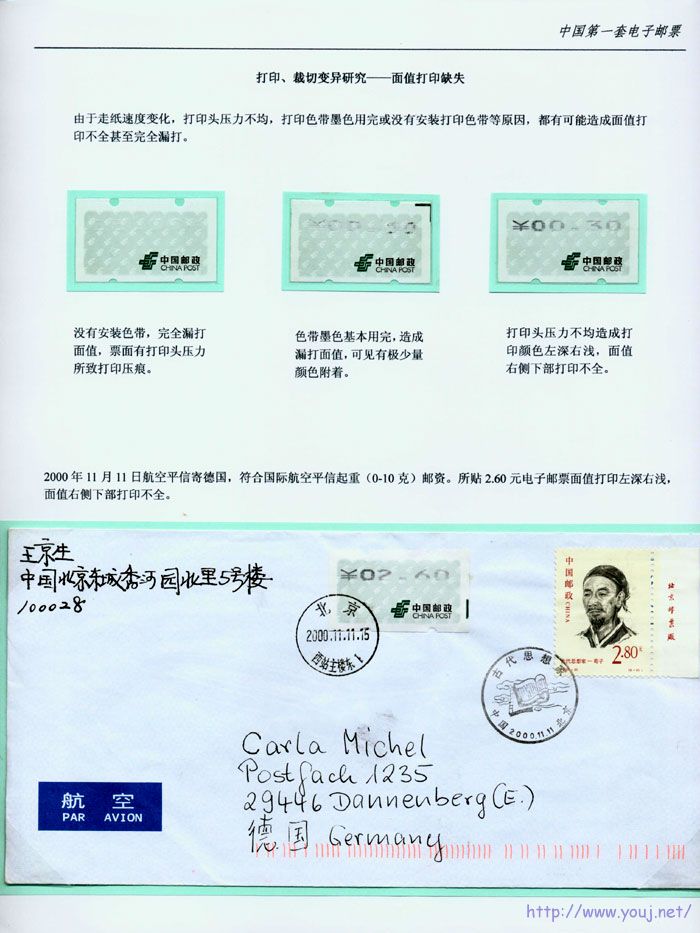 中国第一套电子邮票
打印、裁切变异研究——面值打印缺失
由于走纸速度变化，打印头压力不均，打印色带墨色用完或没有安装打印色带等原因，都有可能造成面值打
印不全甚至完全漏打。
中国邮政
CHINA POST
没有安装色带，完全漏打
面值，票面有打印头压力
所致打印压痕。
中国邮政
CHINA POST
色带墨色基本用完，造成
漏打面值，可见有极少量
颜色附着。
¥00.30
中国邮政
CHINA POST
打印头压力不均造成打
印颜色左深右浅，面值
右侧下部打印不全。
2000 年 11 月 11 日航空平信寄德国，符合国际航空平信起重（0-10 克）邮资。所贴 2.60 元电子邮票面值打印左深右浅，
面值右侧下部打印不全。
王京生
中国北京东城香河园北里5号楼
100028
¥02.60
中国邮政
CHINA POST
北京
2000.11.11.15
西站主楼东
中国邮政
CHINA
2.80元
古代思想家—荀子
北京邮票厂
古代思想家
中国2000.11.11北京
Carla Michel
Postfach 1235
29446 Dannenberg (E.)
德国 Germany
航 空
PAR AVION
http://www.youj.net/